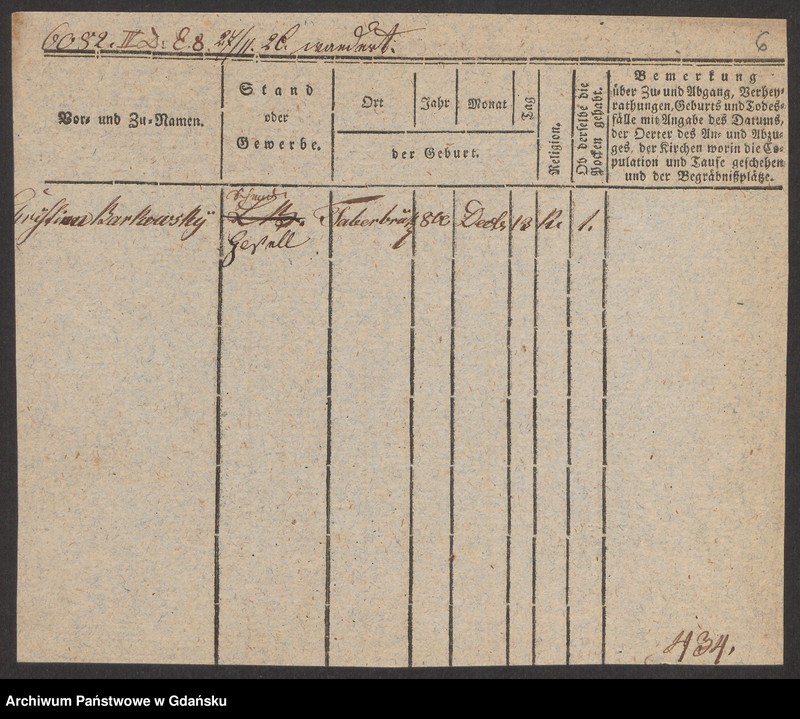 6082. IV D. E. 8. 27/11. 26. wandert.
6
Vor- und Zu-Namen.
Stand
oder
Gewerbe.
Ort
Jahr
Monat
Tag
der Geburt.
Religion.
Ob derselbe die
Pocken gehabt.
Bemerkung
über Zu- und Abgang, Verhey-
rathungen, Geburts und Todes-
fälle mit Angabe des Datums,
der Oerter des An- und Abzu-
ges, der Kirchen worin die Co-
pulation und Taufe geschehen
und der Begräbnißplätze.
Barkowsky
Gesell
Taberbrück
Decbr
13
K.
1.
434.
Archiwum Państwowe w Gdańsku